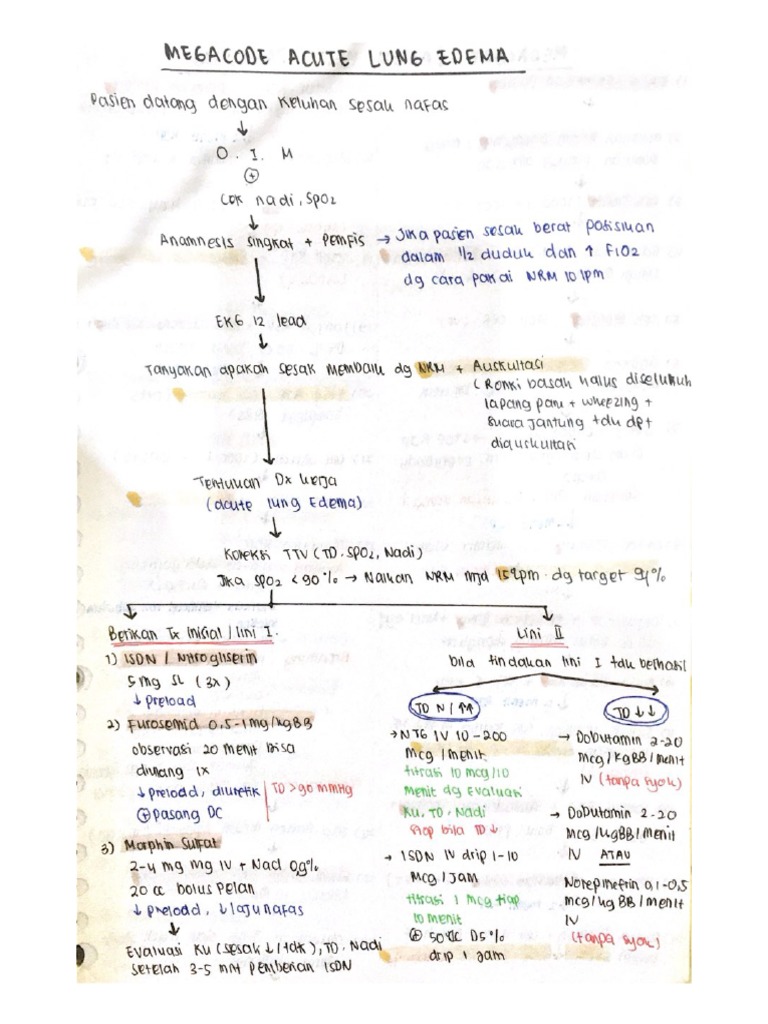 MEGACODE ACUTE LUNG EDEMA
Pasien datang dengan keluhan sesak nafas
O. I. M
+
Cek nadi, SpO2
Anamnesis singkat + Pemfis → Jika pasien sesak berat posisikan
dalam 1/2 duduk dan ↑ FiO2
dg cara pakai NRM 10 lpm
EKG 12 lead
Tanyakan apakah sesak MEMBAIK dg NRM + Auskultasi
(Ronki basah halus diseluruh
lapang paru + wheezing +
suara jantung tdk dpt
diauskultasi
Tentukan Dx kerja
(acute lung Edema)
Koreksi TTV (TD, SPO2, Nadi)
Jika SpO2 < 90 % → Naikan NRM mjd 15 lpm dg target 94%
Berikan Tx Inisial / lini I.
1) ISDN / Nitrogliserin
5 mg SL (3x)
↓ preload
2) Furosemid 0,5-1 mg/kgBB
observasi 20 menit bisa
diulang 1x
↓ preload, diuretik
⊕ pasang DC
TD > 90 mmHg
3) Morphin Sulfat
2-4 mg mg IV + Nacl 0,9%
20 cc bolus pelan
↓ preload, ↓ laju nafas
Evaluasi KU (sesak ↓ / tdk), TD, Nadi
setelah 3-5 mnt pemberian ISDN
Lini II
bila tindakan lini I tdk berhasil
TD N / ↑↑
→ NTG IV 10-200
mcg / menit
titrasi 10 mcg/10
menit dg evaluasi
KU, TD, Nadi
stop bila TD ↓
→ ISDN IV drip 1-10
mcg / jam
titrasi 1 mcg tiap
10 menit
⊕ 50 cc D5 %
drip 1 jam
TD ↓↓
→ Dobutamin 2-20
mcg / kgBB / menit
IV (tanpa syok)
→ Dobutamin 2-20
mcg/kgBB/menit
IV ATAU
Norepinefrin 0,1-0,5
mcg/kg BB / menit
IV
(tanpa syok)